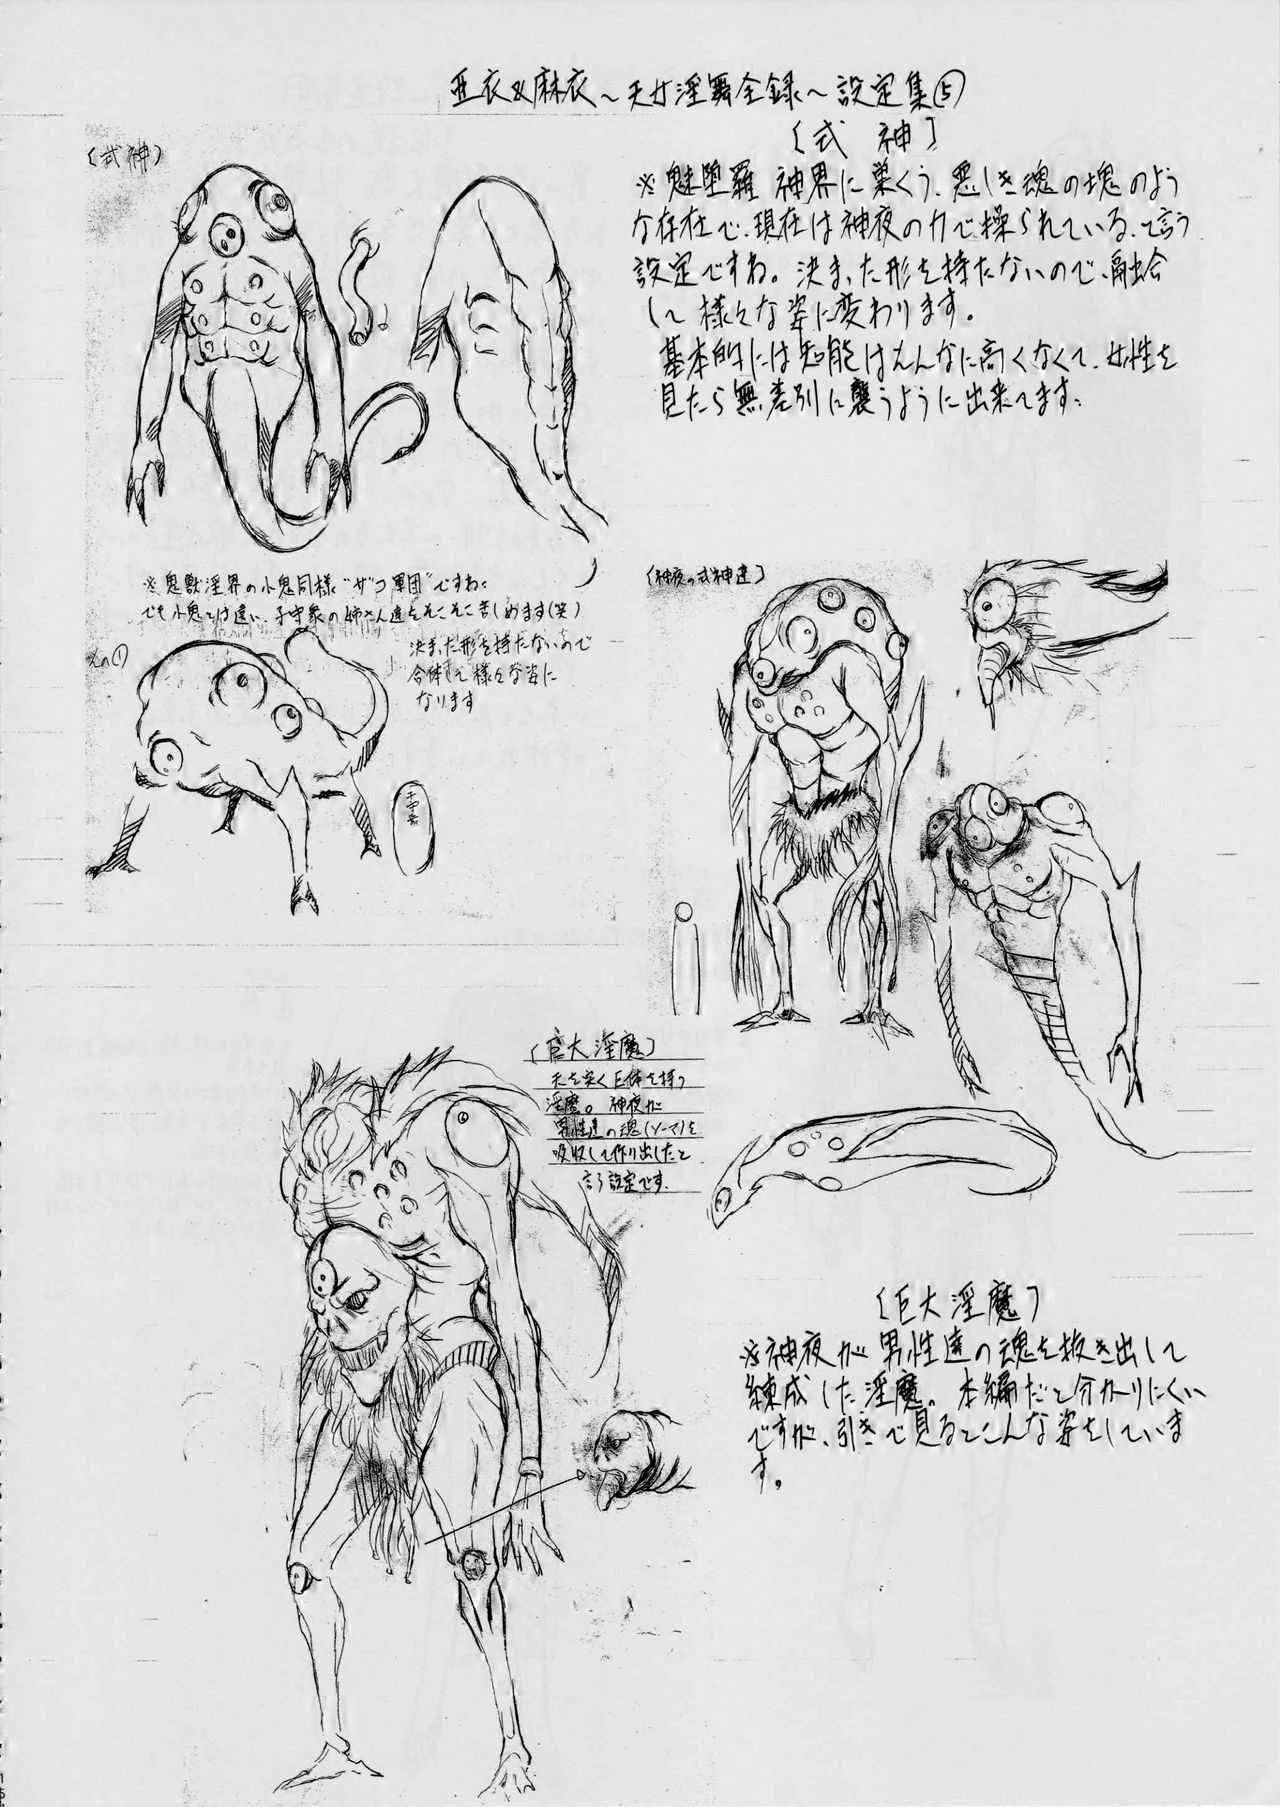 亜衣&麻衣～天女淫舞全録～設定集⑤
〔式神〕
※魅堕羅神界に巣くう、悪しき魂の塊のよう
な存在で、現在は神夜の力で操られている、と言う
設定ですね。決まった形を持たないので、融合
して様々な姿に変わります。
基本的には知能はそんなに高くなくて、女性を
見たら無差別に襲うように出来てます。
(式神)
※鬼獣淫界の小鬼同様“ザコ軍団”ですね。
でも小鬼とは違い、子守衆の姉さん達をそこそこ苦しめます(笑)
決まった形を持たないので
合体して様々な姿に
なります
その①
子守衆
(神夜の式神達)
〔巨大淫魔〕
天を突く巨体を持つ
淫魔。神夜が
男性達の魂(ソーマ)を
吸収して作り出したと
言う設定です。
〔巨大淫魔〕
※神夜が男性達の魂を抜き出して
練成した淫魔。本編だと分かりにくい
ですが、引きで見るとこんな姿をしていま
す。